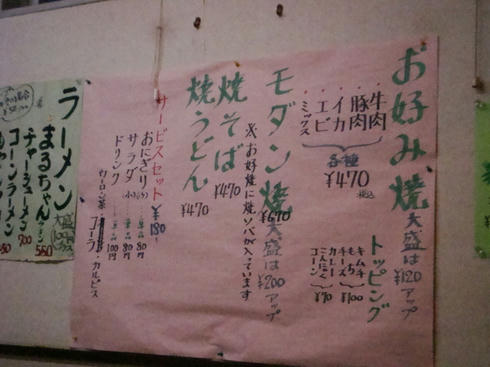 お好み焼 大盛は¥120アップ
・牛肉
・豚肉
・イカ
・エビ
・ミックス
各種
¥470
税込
トッピング
キムチ
もち
チーズ
¥100
カレー
コーン
こんにゃく
¥70
モダン焼 ¥670 大盛は¥200アップ
※お好焼に焼ソバが入っています
焼そば ¥470
焼うどん ¥470
サービスセット ¥180
おにぎり
サラダ(小) 単品80円
ドリンク 単品100円
ウーロン茶
コーラ・カルピス
ラーメン
まるちゃんラーメン 550
チャーシューメン 700
コーンラーメン